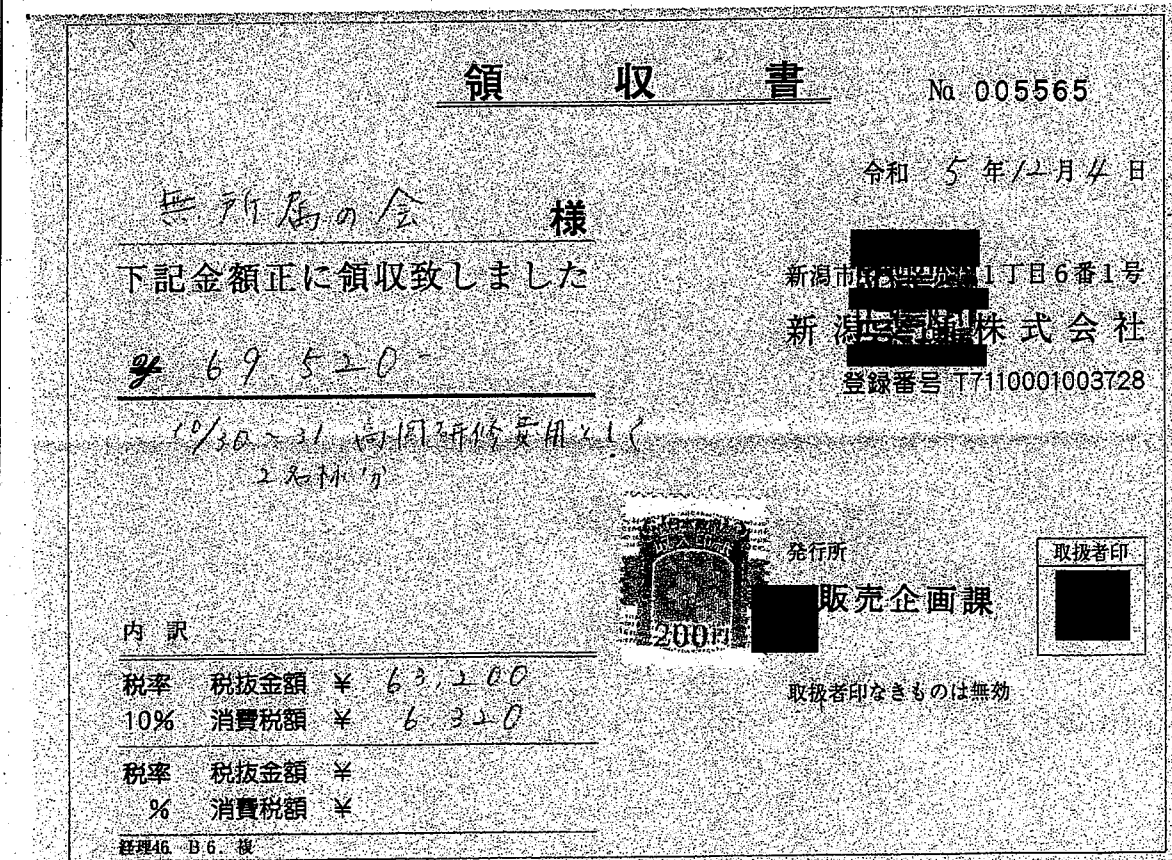 領 収 書
No 005565
令和 5 年 12 月 4 日
無所属の会 様
下記金額正に領収致しました
新潟市 1丁目6番1号
新潟 株式会社
登録番号 T7110001003728
¥ 69.520-
10/30~31 岡研修費用として
2名様分
日本政府
200円
発行所
販売企画課
取扱者印
取扱者印なきものは無効
内 訳
税率 税抜金額 ¥ 63,200
10% 消費税額 ¥ 6 320
税率 税抜金額 ¥
% 消費税額 ¥
経理46. B6. 複